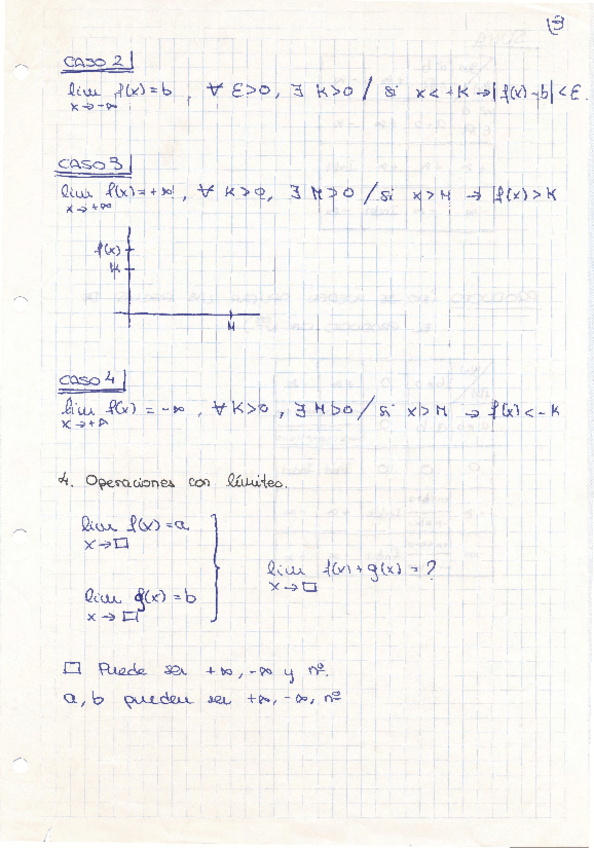 3
CASO 2
lim f(x) = b , ∀ Ɛ>0, ∃ K>0 / si x < -K → |f(x)-b| < Ɛ.
x→-∞
CASO 3
lim f(x) = +∞ , ∀ K>0, ∃ M>0 / si x>M → f(x)>K
x→+∞
f(x)
K
M
CASO 4
lim f(x) = -∞ , ∀ K>0 , ∃ M>0 / si x>M → f(x)<-K
x→+∞
4. Operaciones con límites.
lim f(x) = a
x→□
lim f(x)+g(x) = ?
x→□
lim g(x) = b
x→□
□ Puede ser +∞, -∞ y nº.
a, b pueden ser +∞, -∞, nº